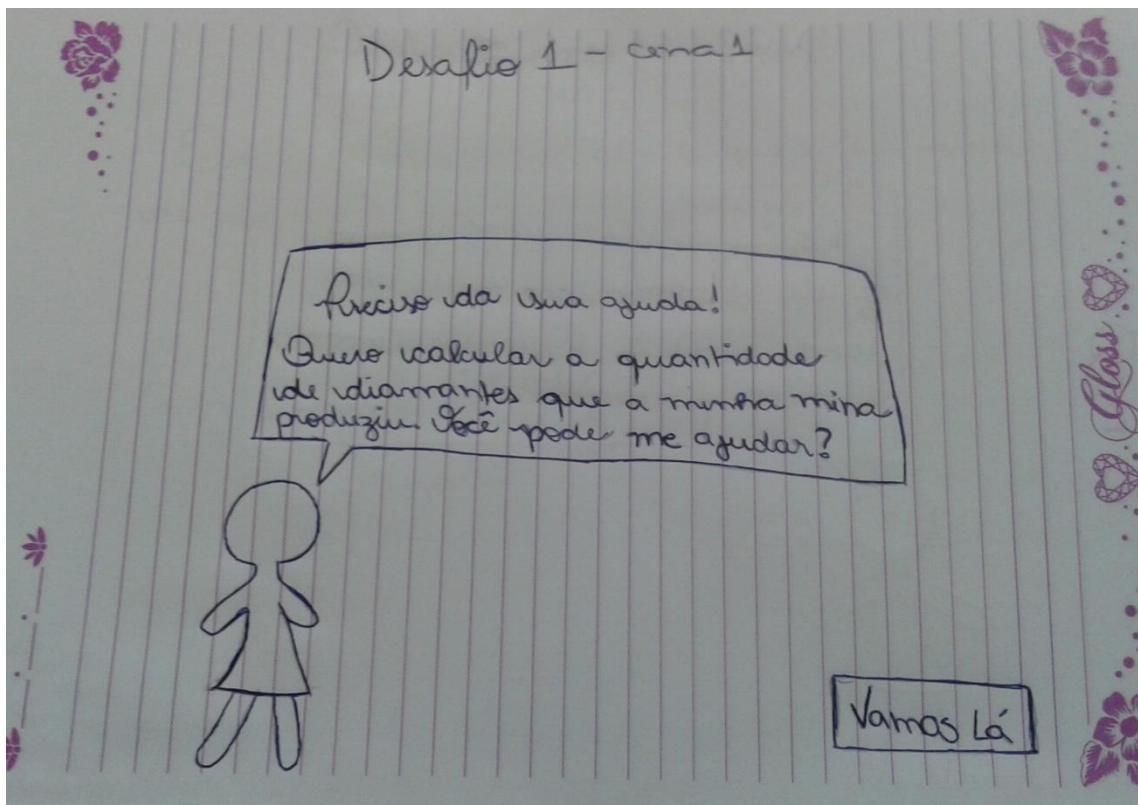 Desafio 1 - cena 1
Preciso da sua ajuda!
Quero calcular a quantidade
de diamantes que a minha mina
produziu. Você pode me ajudar?
Vamos Lá
Gloss